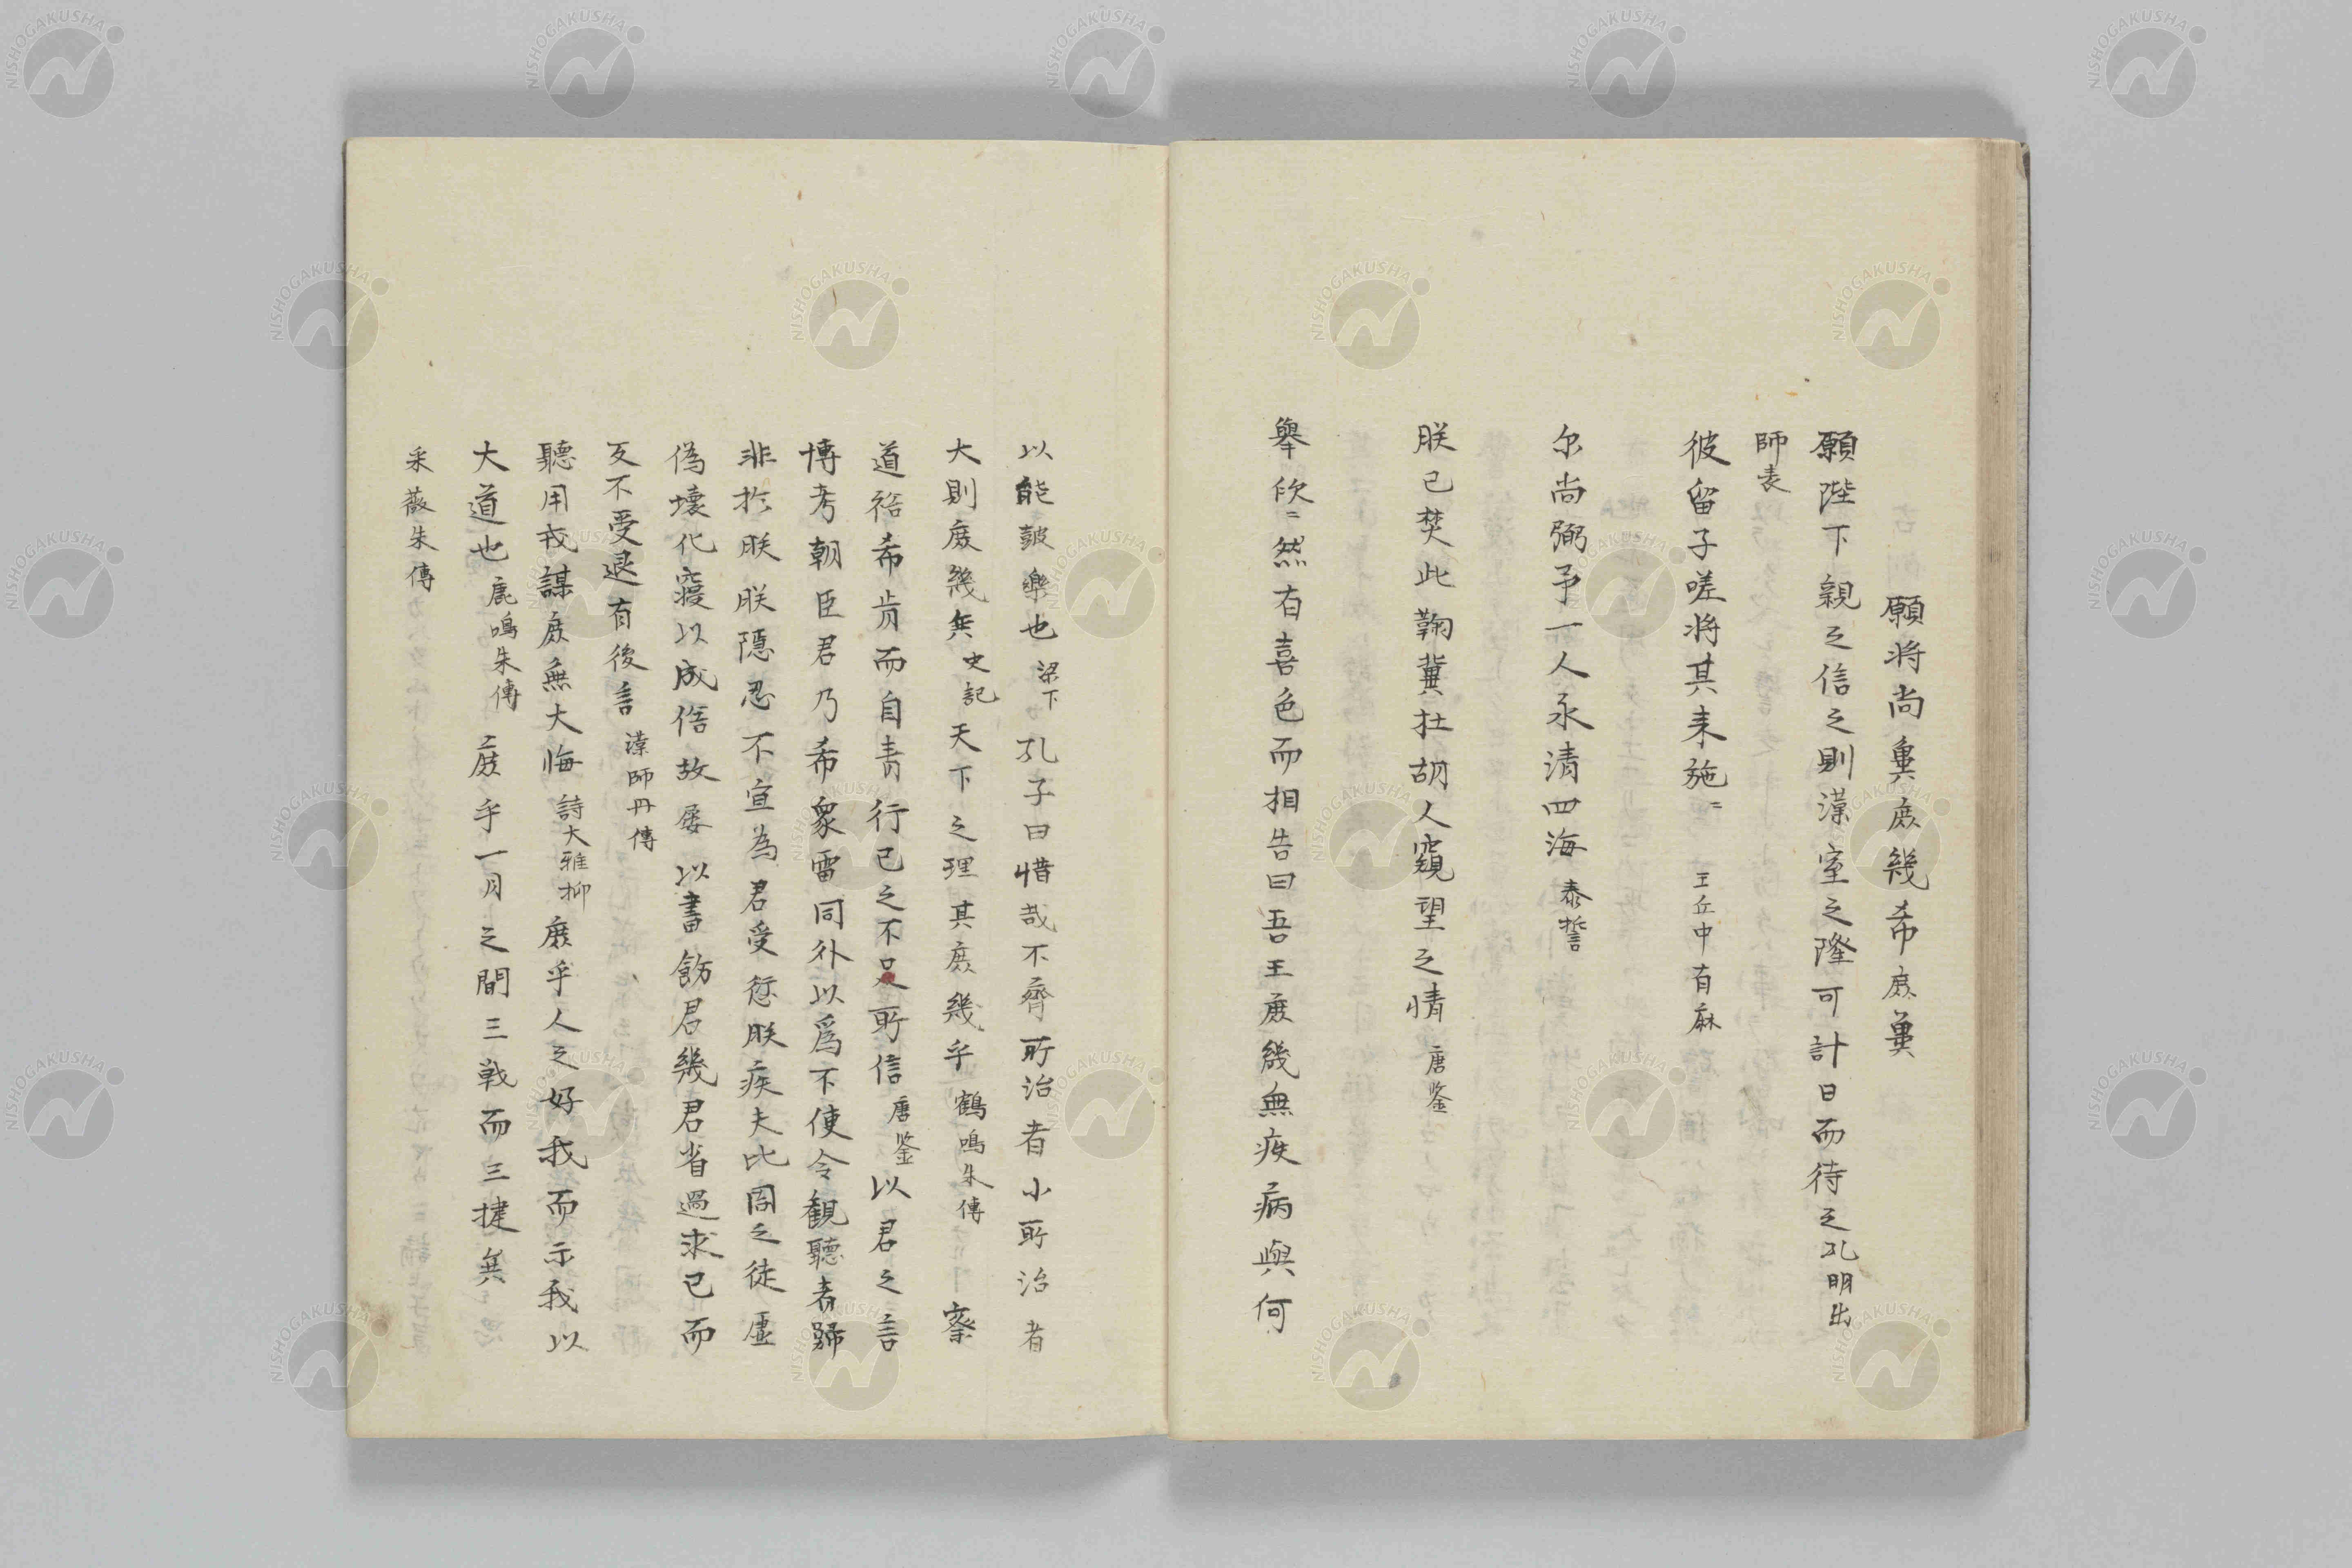 願將尚冀庶幾希庶冀
願陛下親之信之則漢室之隆可計日而待之孔明出
師表
彼留子嗟将其来施〻 王丘中有麻
尔尚弼予一人永清四海 泰誓
朕已焚此鞠冀杜胡人窺望之情 唐鉴
舉欣〻然有喜色而相告曰吾王庶幾無疾病與何
以能皷樂也 梁下 孔子曰惜哉不齊所治者小所治者
大則庶幾矣 史記 天下之理其庶幾乎 鶴鳴朱傳 察
道裕希肯而自責行己之不足所信 唐鉴 以君之言
博考朝臣君乃希衆雷同外以爲不便令観聽者歸
非於朕朕隱忍不宣為君受愆朕疾夫比周之徒虚
偽壊化寖以成俗故屡以書飭君幾君省過求己而
反不受退有後言 漢師丹傳
聽用我謀庶無大悔 詩大雅抑 庶乎人之好我而示我以
大道也 鹿鳴朱傳 庶乎一月之間三戦而三捷矣
采薇朱傳
NISHOGAKUSHA